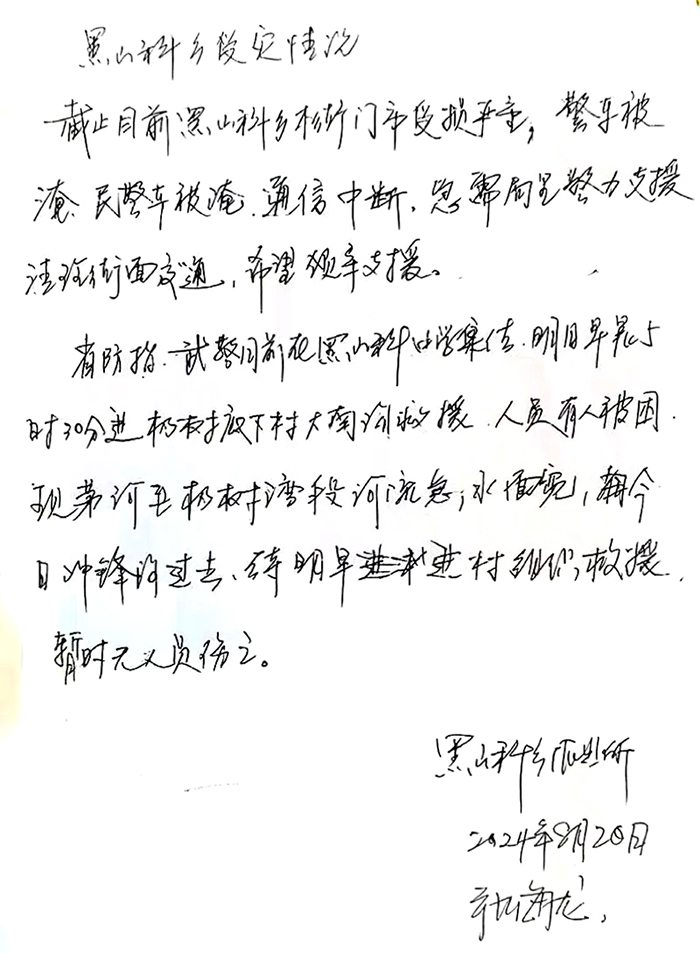 黑山科乡受灾情况
截止目前黑山科乡村街门市受损严重，警车被
淹、民警车被淹、通信中断，急需局里警力支援
清理街面交通，希望领导支援。
省防指、武警目前在黑山科中学集结，明日早晨5
时30分进杨树底下村大南沟救援，人员有人被困。
现第河至杨树湾段河流急，水面宽，
日冲锋过去，待明早进村组织救援，
暂时无人员伤亡。
黑山科乡派出所
2024年8月20日
海龙